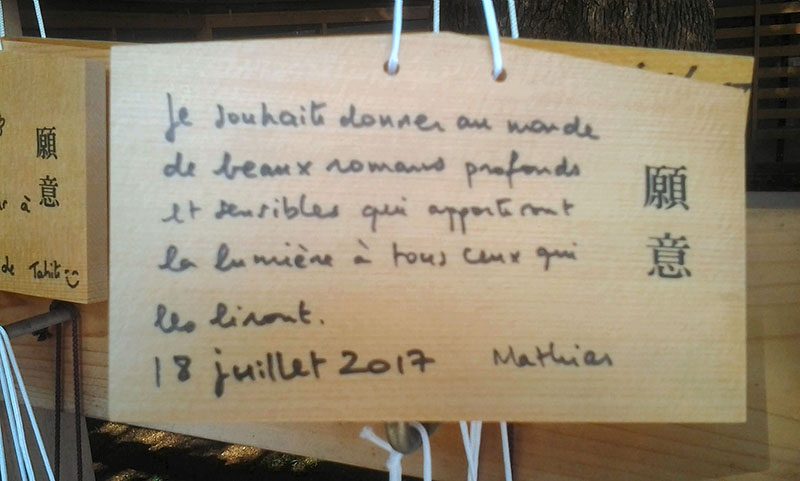 Je souhaite donner au monde
de beaux romans profonds
et sensibles qui apporteront
la lumière à tous ceux qui
les liront.
18 juillet 2017 Mathias
願意
願意
à
de Tahiti